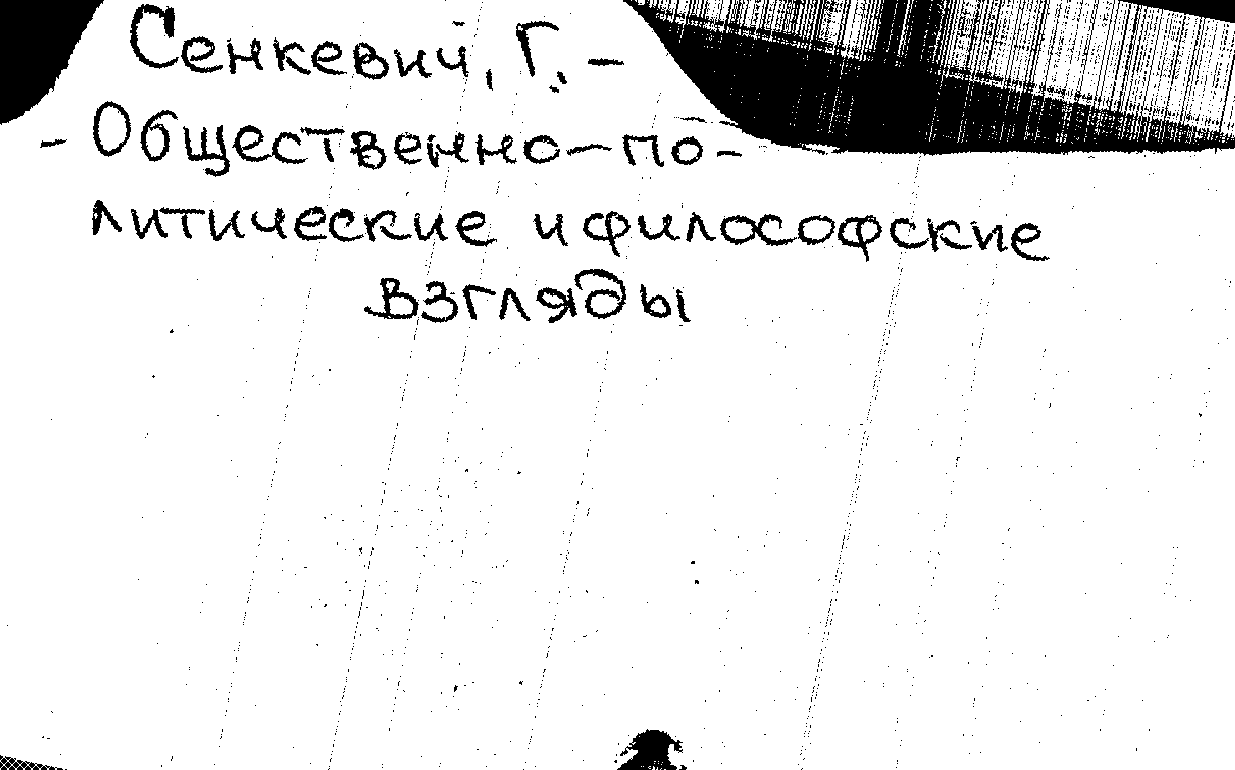 Сенкевич, Г. –
- Общественно-по-
литические и философские
взгляды